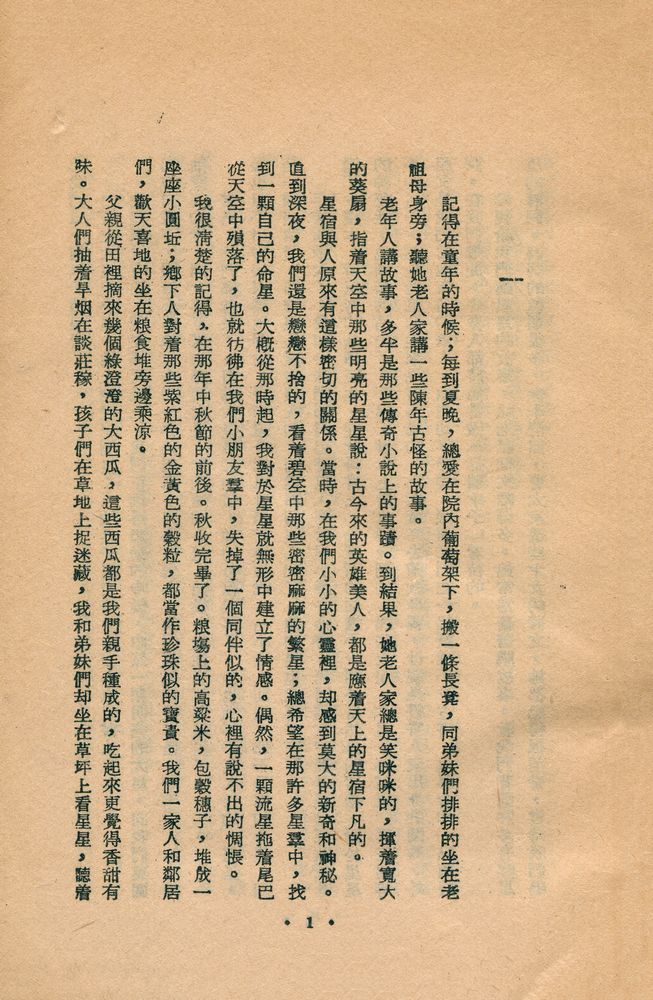 一
記得在童年的時候；每到夏晚，總愛在院內葡萄架下，搬一條長凳，同弟妹們排排的坐在老
祖母身旁；聽她老人家講一些陳年古怪的故事。
老年人講故事，多半是那些傳奇小說上的事蹟。到結果，她老人家總是笑咪咪的，揮着寬大
的葵扇，指着天空中那些明亮的星星說：古今來的英雄美人，都是應着天上的星宿下凡的。
星宿與人原來有這樣密切的關係。當時，在我們小小的心靈裡，却感到莫大的新奇和神秘。
直到深夜，我們還是戀戀不捨的，看着碧空中那些密密麻麻的繁星；總希望在那許多星羣中，找
到一顆自己的命星。大概從那時起，我對於星星就無形中建立了情感。偶然，一顆流星拖着尾巴
從天空中殞落了，也就彷彿在我們小朋友羣中，失掉了一個同伴似的，心裡有說不出的惆悵。
我很清楚的記得，在那年中秋節的前後。秋收完畢了。粮塲上的高粱米，包穀穗子，堆成一
座座小圓坵；鄉下人對着那些紫紅色的金黃色的穀粒，都當作珍珠似的寶貴。我們一家人和鄰居
們，歡天喜地的坐在粮食堆旁邊乘凉。
父親從田裡摘來幾個綠澄澄的大西瓜，這些西瓜都是我們親手種成的，吃起來更覺得香甜有
味。大人們抽着旱烟在談莊稼，孩子們在草地上捉迷藏，我和弟妹們却坐在草坪上看星星，聽着
• 1 •